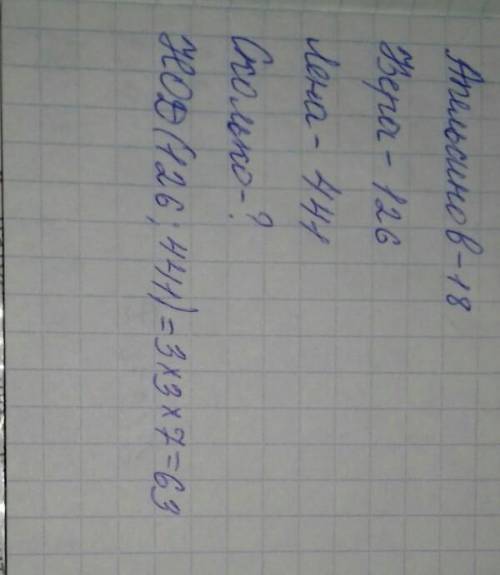 Апельсинов - 18
Вера - 126
Лена - 441
Сколько - ?
НОД (126; 441) = 3 х 3 х 7 = 63